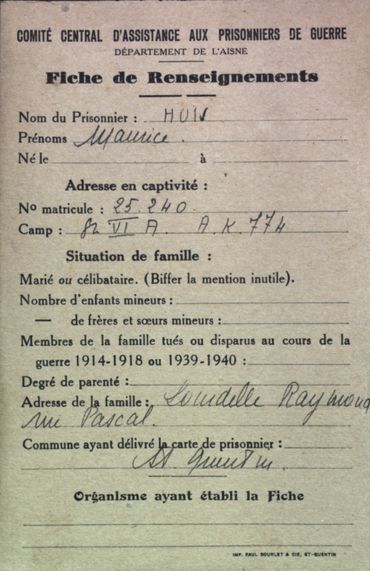 COMITÉ CENTRAL D'ASSISTANCE AUX PRISONNIERS DE GUERRE
DÉPARTEMENT DE L'AISNE
Fiche de Renseignements
Nom du Prisonnier : HUIN
Prénoms Maurice.
Né le à
Adresse en captivité :
No matricule : 25.240.
Camp : VI A. A.K. 774
Situation de famille :
Marié ou célibataire. (Biffer la mention inutile).
Nombre d'enfants mineurs :
— de frères et sœurs mineurs :
Membres de la famille tués ou disparus au cours de la
guerre 1914-1918 ou 1939-1940 :
Degré de parenté :
Adresse de la famille : Raymond
rue Pascal.
Commune ayant délivré la carte de prisonnier :
St Quentin.
Organisme ayant établi la Fiche
IMP. PAUL BOURLET & CIE, ST-QUENTIN